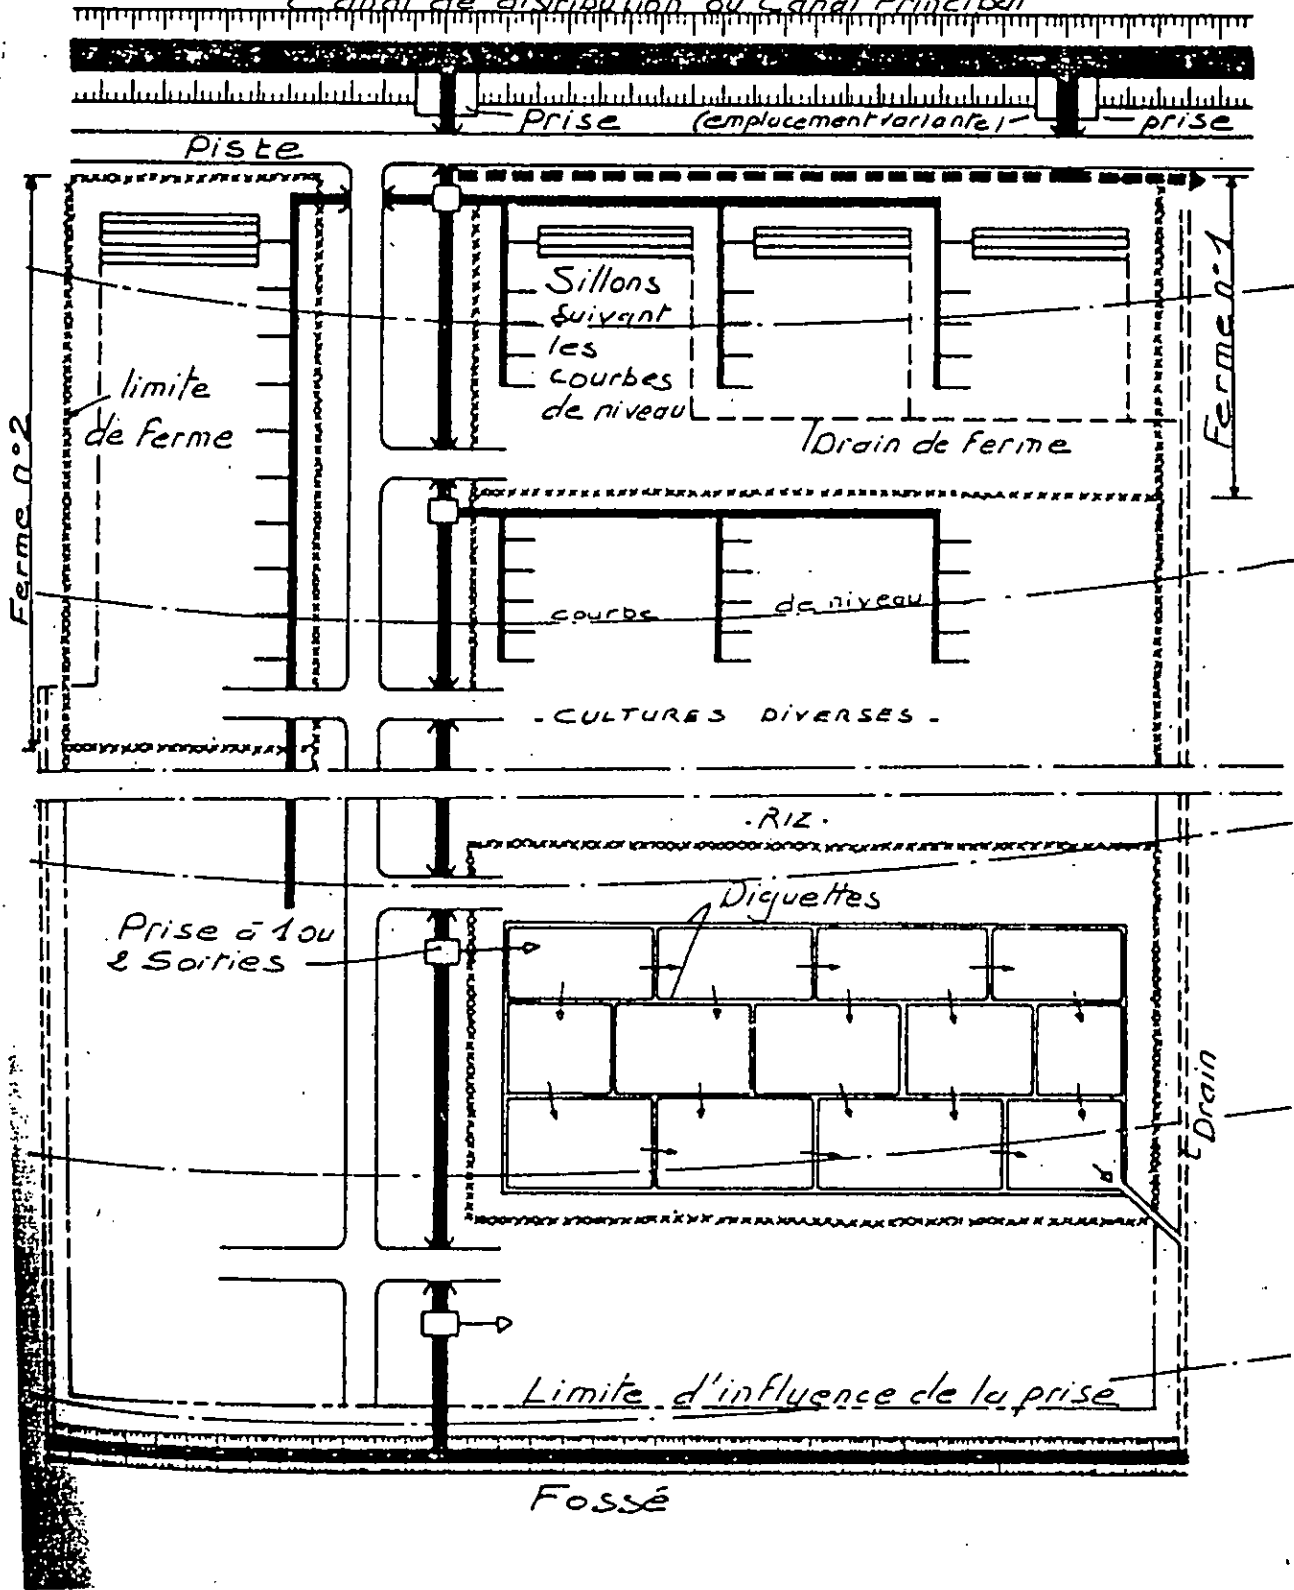 Canal de distribution ou Canal Principal
Prise
(emplacement variante)
prise
Piste
Sillons
suivant
les
courbes
de niveau
Ferme n°1
limite
de Ferme
Drain de Ferme
Ferme n°2
courbe de niveau
- CULTURES DIVERSES -
- RIZ -
Diguettes
Prise à 1 ou
2 Sorties
Drain
Limite d'influence de la prise
Fossé